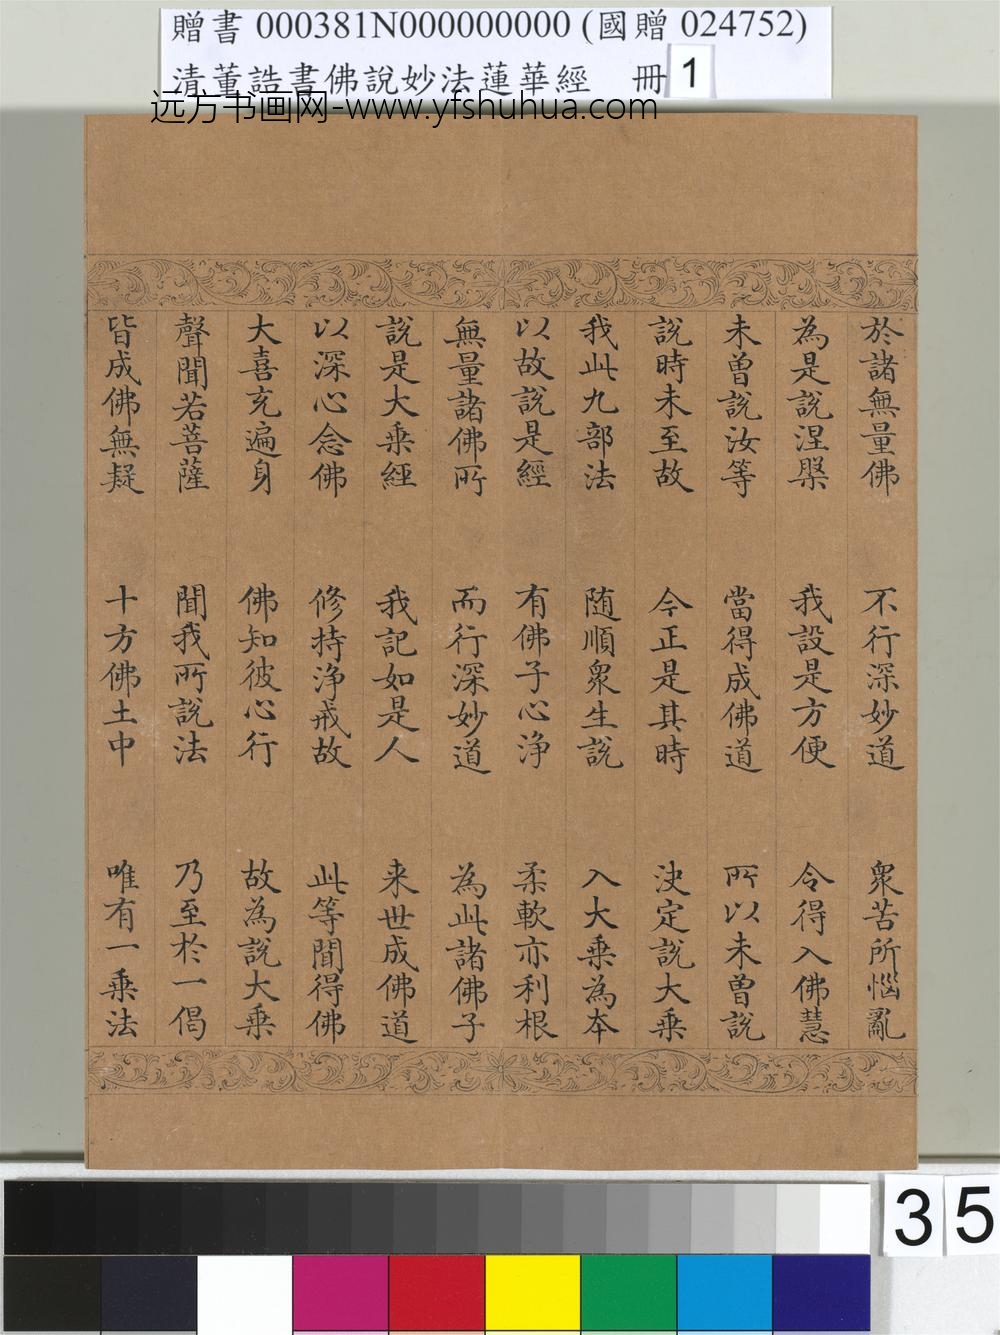 贈書 000381N000000000 (國贈 024752)
清董誥書佛說妙法蓮華經 冊 1
远方书画网-www.yfshuhua.com
於諸無量佛 不行深妙道 眾苦所惱亂
為是說涅槃 我設是方便 令得入佛慧
未曾說汝等 當得成佛道 所以未曾說
說時未至故 今正是其時 決定說大乘
我此九部法 随順眾生說 入大乘為本
以故說是經 有佛子心淨 柔軟亦利根
無量諸佛所 而行深妙道 為此諸佛子
說是大乘經 我記如是人 来世成佛道
以深心念佛 修持淨戒故 此等聞得佛
大喜充遍身 佛知彼心行 故為說大乘
聲聞若菩薩 聞我所說法 乃至於一偈
皆成佛無疑 十方佛土中 唯有一乘法
35